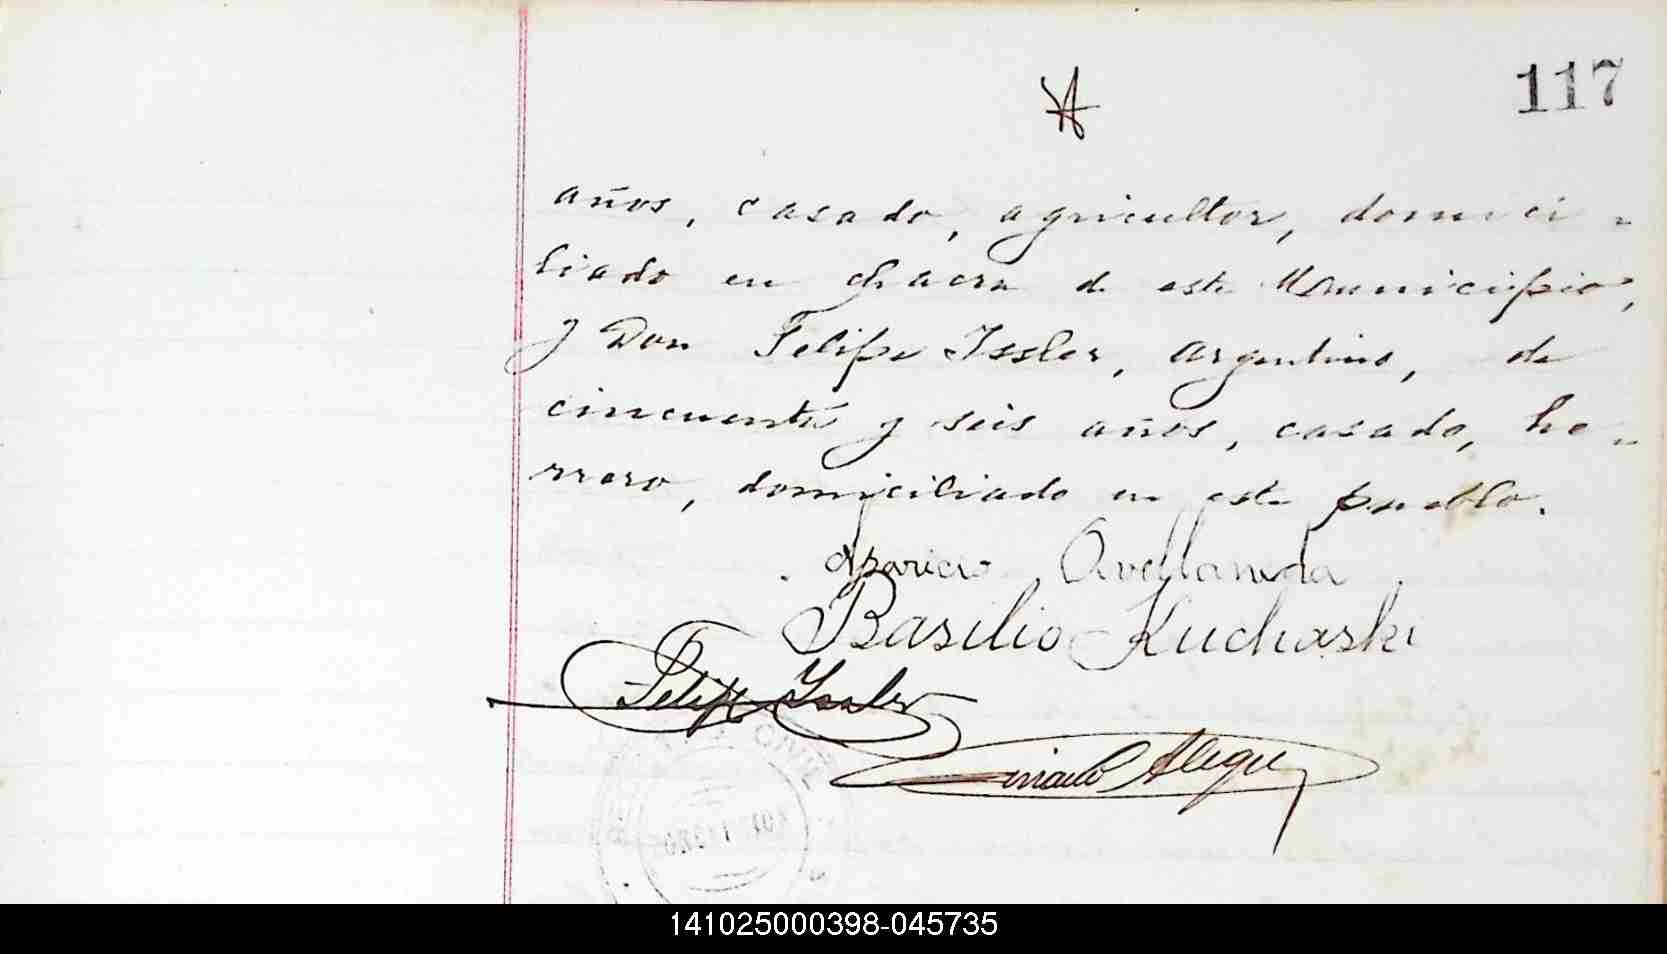 117
años, casado, agricultor, domici-
liado en chacra de este Municipio,
y Don Felipe Issler, argentino, de
cincuenta y seis años, casado, he-
rrero, domiciliado en este pueblo.
Aparicio Avellaneda
Basilio Kucharski
Felipe Issler
Alegre
CIVIL
141025000398-045735